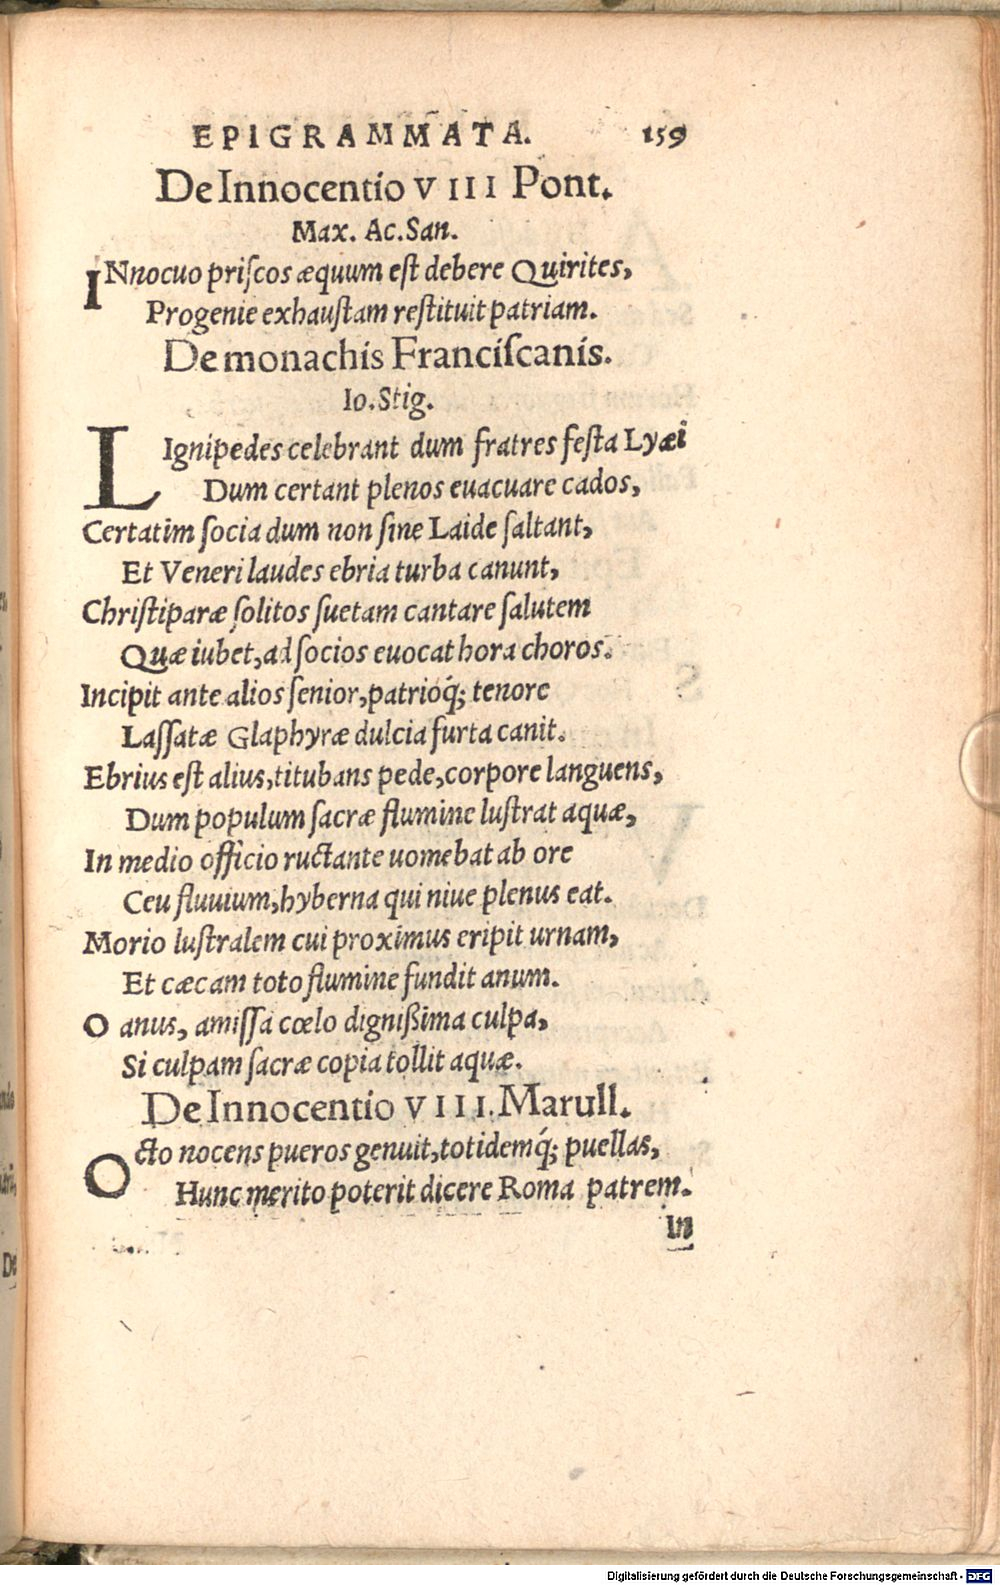 EPIGRAMMATA. 159
De Innocentio VIII Pont.
Max. Ac. San.
INnocuo priſcos æquum eſt debere Quirites,
Progenie exhauſtam reſtituit patriam.
De monachis Franciſcanis.
Io. Stig.
LIgnipedes celebrant dum fratres feſta Lyæi
Dum certant plenos euacuare cados,
Certatim ſocia dum non ſine Laide ſaltant,
Et Veneri laudes ebria turba canunt,
Chriſtiparæ ſolitos ſuetam cantare ſalutem
Quæ iubet, ad ſocios euocat hora choros.
Incipit ante alios ſenior, patrioq́; tenore
Laſſatæ Glaphyræ dulcia furta canit.
Ebrius eſt alius, titubans pede, corpore languens,
Dum populum ſacræ flumine luſtrat aquæ,
In medio officio ructante uomebat ab ore
Ceu fluuium, hyberna qui niue plenus eat.
Morio luſtralem cui proximus eripit urnam,
Et cæcam toto flumine fundit anum.
O anus, amiſſa cœlo digniſſima culpa,
Si culpam ſacræ copia tollit aquæ.
De Innocentio VIII. Marull.
Octo nocens pueros genuit, totidemq́; puellas,
Hunc merito poterit dicere Roma patrem.
In
De
Digitalisierung gefördert durch die Deutsche Forschungsgemeinschaft - DFG